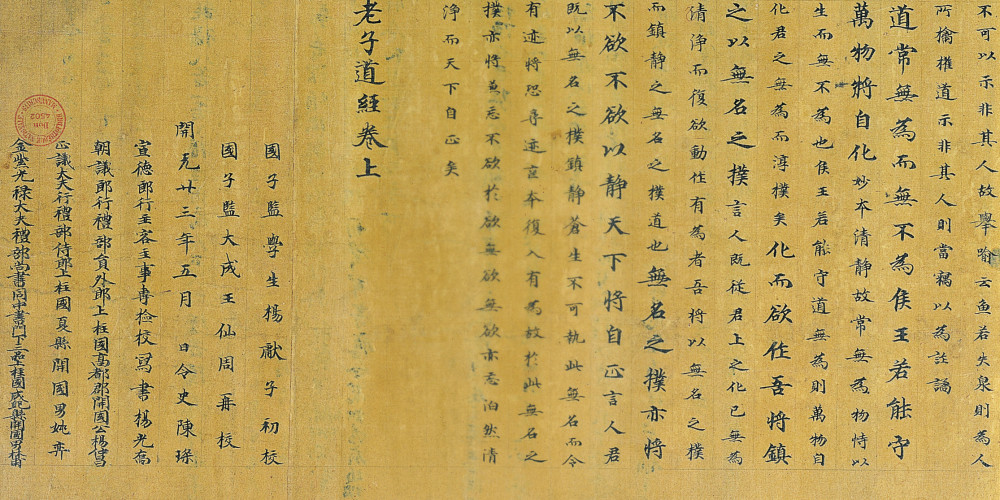 不可以示非其人故舉喻云魚若失泉則為人
所擒權道示非其人則當竊以為詐譎
道常無為而無不為侯王若能守
萬物將自化妙本清靜故常無為物恃以
生而無不為也侯王若能守道無為則萬物自
化君之無為而淳樸矣化而欲作吾將鎮
之以無名之樸言人既從君上之化已無為
清淨而復欲動作有為者吾將以無名之樸
而鎮靜之無名之樸道也無名之樸亦將
不欲不欲以静天下將自正言人君
既以無名之樸鎮靜蒼生不可執此無名而令
有迹將恐尋迹言本復入有為故於此無名之
樸亦將兼忘不欲於欲無欲無欲亦忘泊然清
淨而天下自正矣
老子道經卷上
國子監學生楊獻子初校
國子監大成王仙周再校
開元廿三年五月 日令史陳琛
宣德郎行主客主事專檢校寫書楊光喬
朝議郎行禮部員外郎上柱國高都郡開國公楊仲昌
正議大夫行禮部侍郎上柱國夏縣開國男姚弈
金紫光祿大夫禮部尚書同中書門下三品上柱國成紀縣開國男林甫